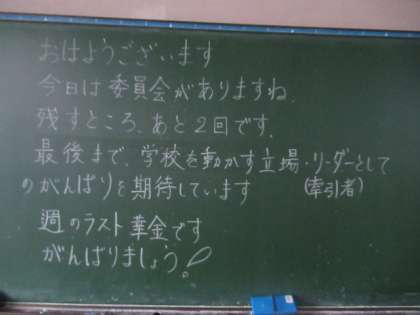 おはようございます
今日は委員会がありますね.
残すところ、あと2回です.
最後まで、学校を動かす立場・リーダーとして
のがんばりを期待しています (牽引者)
週のラスト華金です
がんばりましょう!